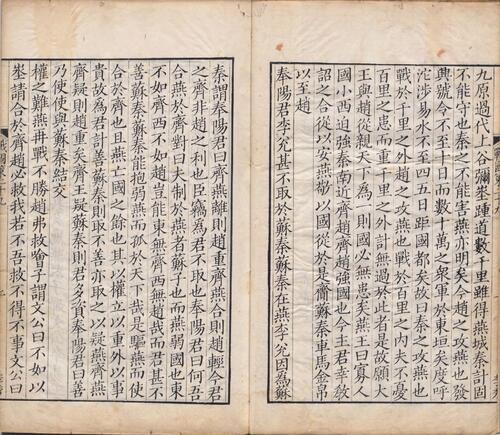 九原過代上谷彌埊踵道數千里雖得燕城秦計固
不能守也秦之不能害燕亦明矣今趙之攻燕也發
興號令不至十日而數十萬之衆軍於東垣矣度呼
沱涉易水不至四五日距國都矣故曰秦之攻燕也
戰於千里之外趙之攻燕也戰於百里之内夫不憂
百里之患而重千里之外計無過於此者是故願大
王與趙從親天下為一則國必無患矣燕王曰寡人
國小西迫強秦南近齊趙齊趙強國也今主君幸敎
詔之合從以安燕敬以國從於是齎蘇秦車馬金帛
以至趙
奉陽君李兊甚不取於蘇秦蘇秦在燕李兊因為蘇
秦謂奉陽君曰齊燕離則趙重齊燕合則趙輕今君
之齊非趙之利也臣竊為君不取也奉陽君曰何吾
合燕於齊對曰夫制於燕者蘇子也而燕弱國也東
不如齊西不如趙豈能東無齊西無趙哉而君甚不
善蘇秦蘇秦能抱弱燕而孤於天下哉是驅燕而使
合於齊也且燕亡國之餘也其以權立以重外以事
貴故為君計善蘇秦則取不善亦取之以疑燕齊燕
齊疑則趙重矣齊王疑蘇秦則君多資奉陽君曰善
乃使使與蘇秦結交
權之難燕再戰不勝趙弗救噲子謂文公曰不如以
埊請合於齊趙必救我若不吾救不得不事文公曰